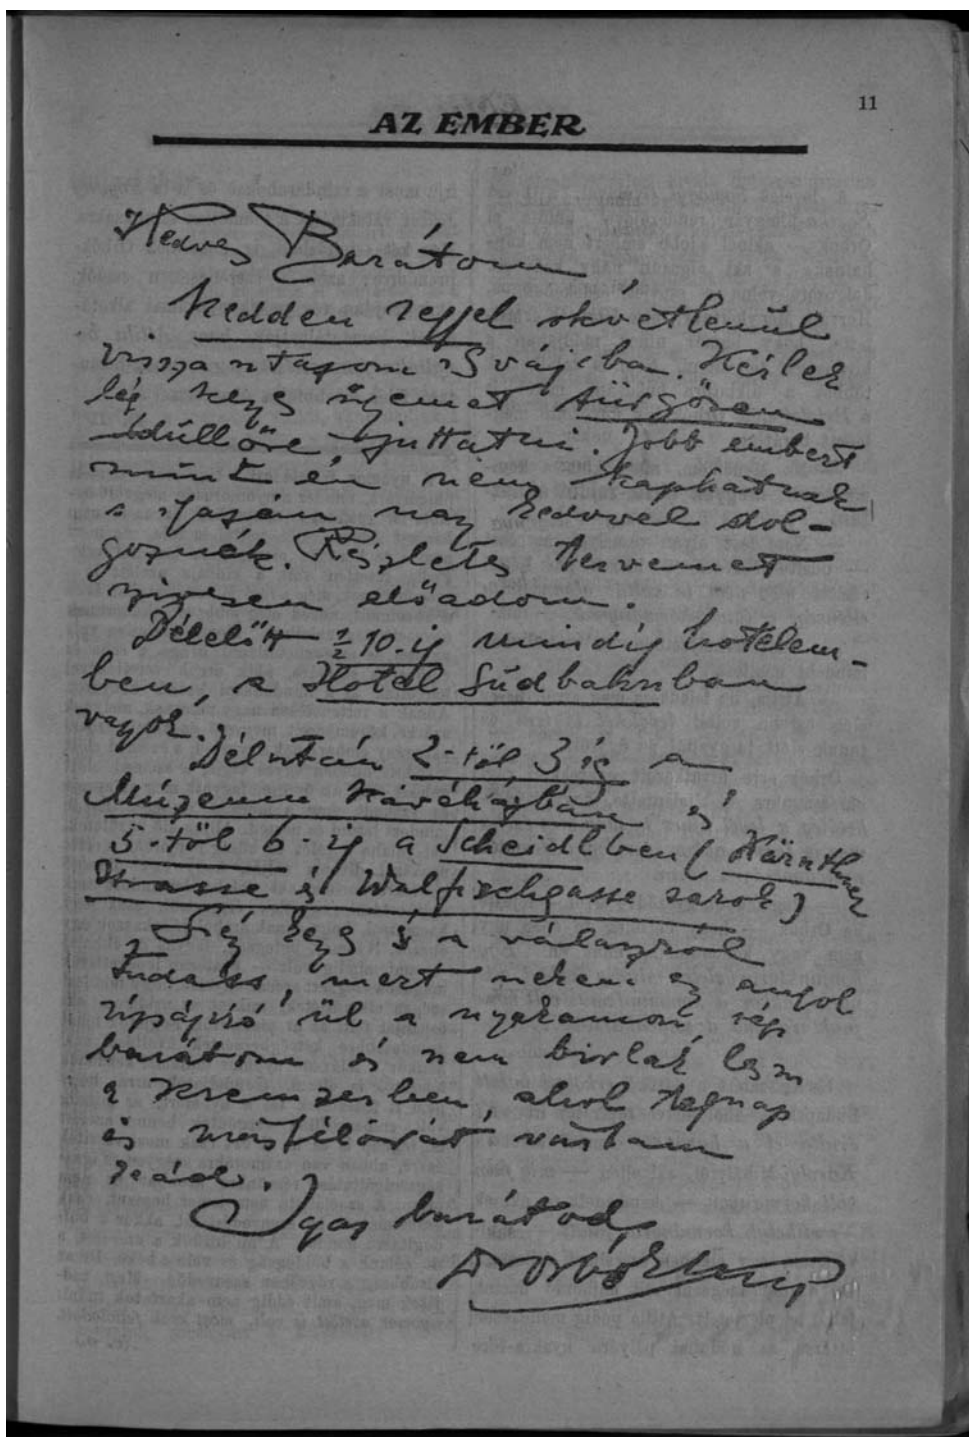 11
AZ EMBER
Kedves Barátom
Kedden reggel okvetlenül
vissza utazom Svájcba. Kérlek
légy kegyes ügyemet sürgősen
dűllőre juttatni. Jobb embert
mint én nem kaphatnak
s igazán nagy kedvvel dol-
goznék. Részletes tervemet
szívesen előadom.
Délelőtt ½10.ig mindig hotelem-
ben, a Hotel Südbahnban
vagyok.
Délután 2-től 3 ig a
Múzeum Kávéházban és
5-től 6-ig a Scheidlben (Kärnthner
Strasse és Walfischgasse sarok)
Légy kegyes a válaszról
tudass, mert nekem az angol
a nyakamon
barátom és nem birlak
a ahol tegnap
is másfélórát vártam
reád.
Igaz barátod